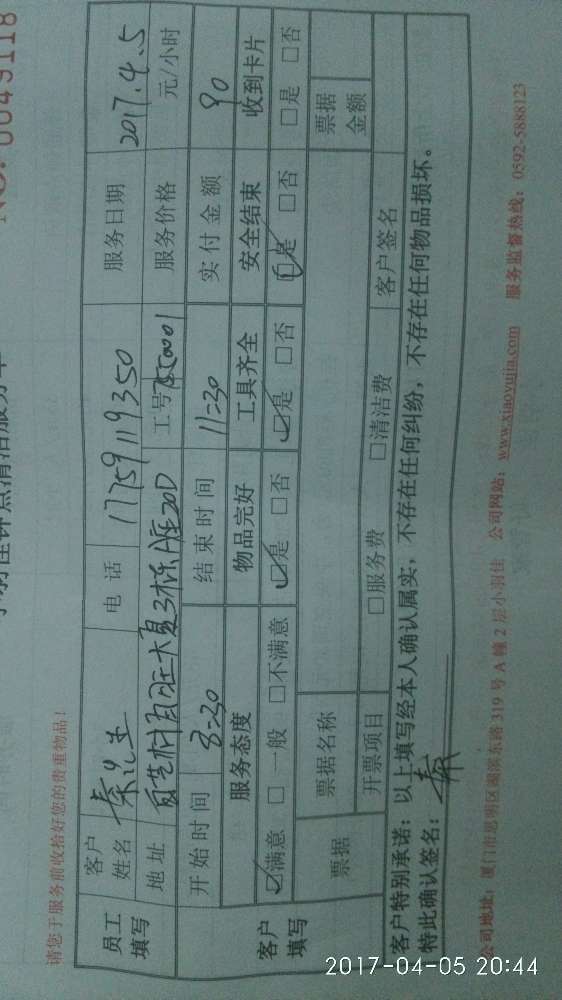 NO. 0049118
请您于服务前收拾好您的贵重物品！
员工填写 客户姓名 电话 17759119350 服务日期 2017.4.5
地址 工号 服务价格 元/小时
客户填写 开始时间 8:30 结束时间 11:30 实付金额 90
服务态度 物品完好 工具齐全 安全结束 收到卡片
☑满意 □一般 □不满意 ☑是 □否 ☑是 □否 ☑是 □否 □是 □否
票据 票据名称 票据金额
开票项目 □服务费 □清洁费 客户签名
客户特别承诺：以上填写经本人确认属实，不存在任何纠纷，不存在任何物品损坏。
特此确认签名：
公司地址：厦门市思明区湖滨东路319号A幢2层小羽佳 公司网站：www.xiaoyujia.com 服务监督热线：0592-5888123
2017-04-05 20:44